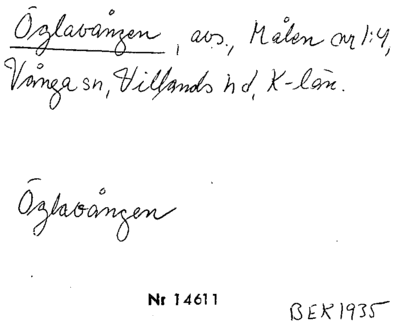 Öglavången, avs., Målen nr 1:4,
Vånga sn, Villands hd, K-län.
Öglavången
Nr 14611
BEK 1935